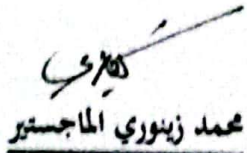 محمد زينوري الماجستير